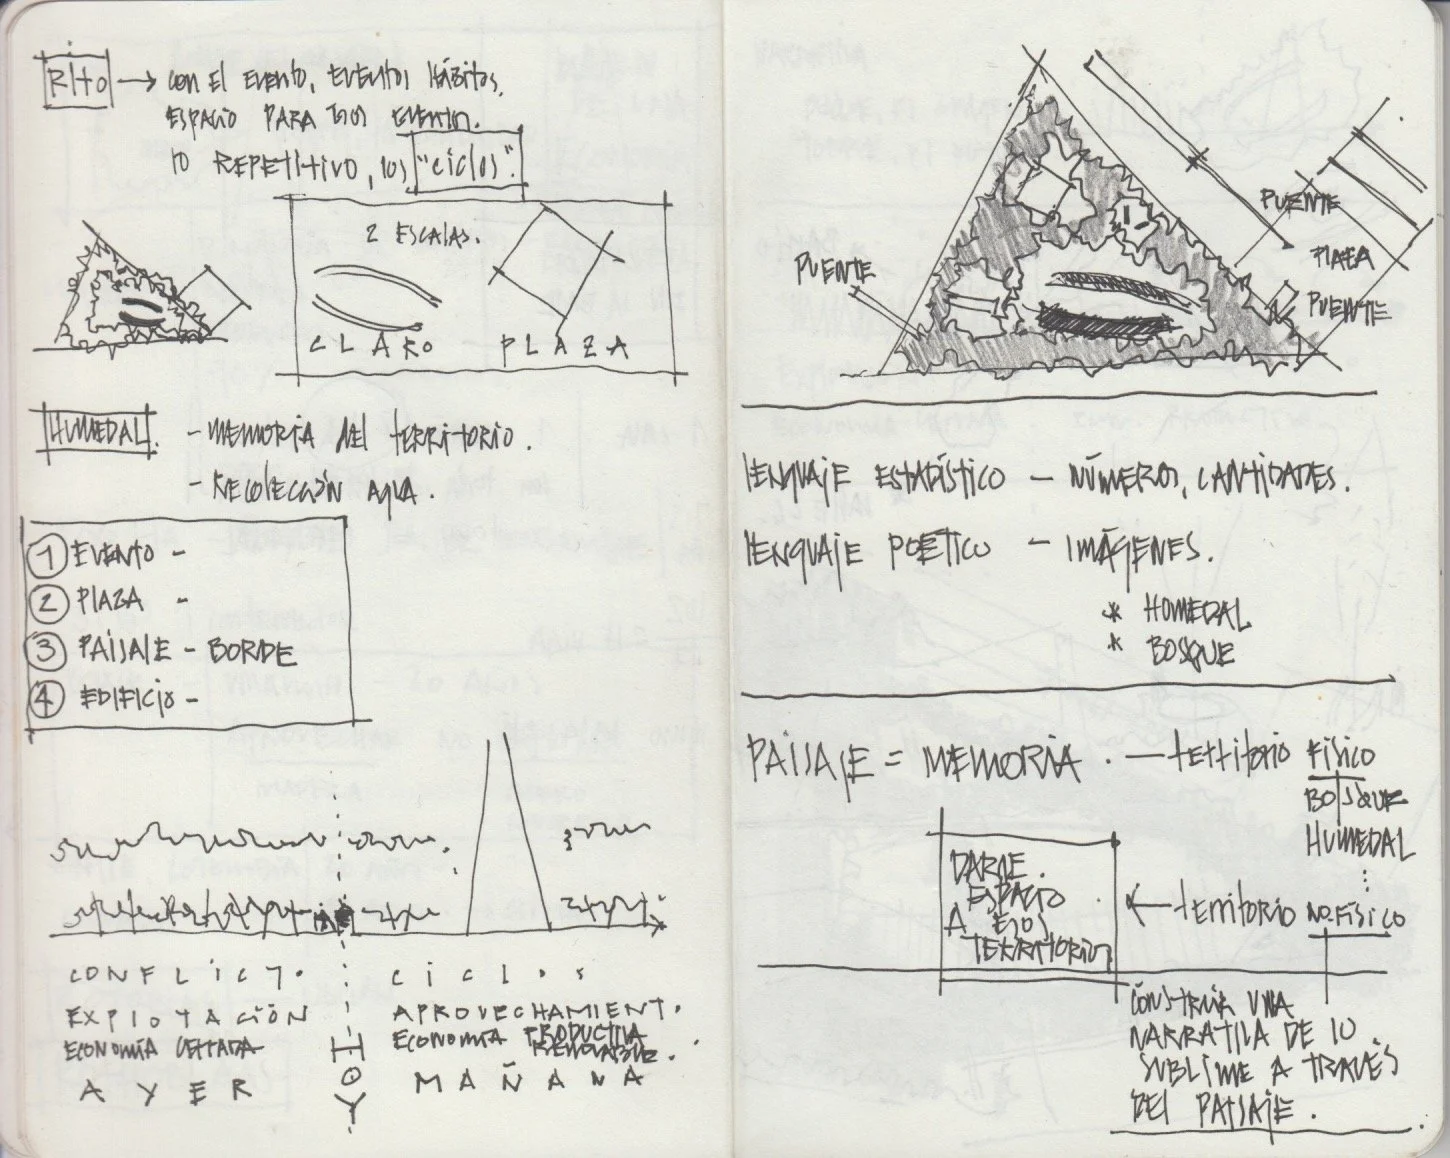 RITO → CON EL EVENTO, EVENTOS HÁBITOS,
ESPACIO PARA ESOS EVENTOS.
LO REPETITIVO, LOS "CICLOS".
2 ESCALAS.
CLARO PLAZA
HUMEDAL. - MEMORIA DEL TERRITORIO.
- RECOLECCIÓN AGUA.
1 EVENTO -
2 PLAZA -
3 PAISAJE - BORDE
4 EDIFICIO -
CONFLICTO
EXPLOTACIÓN
ECONOMÍA
AYER
HOY
CICLOS
APROVECHAMIENTO.
ECONOMÍA PRODUCTIVA
RENOVABLE.
MAÑANA
PUENTE
PUENTE
PLAZA
PUENTE
LENGUAJE ESTADÍSTICO - NÚMEROS, CANTIDADES.
LENGUAJE POÉTICO - IMÁGENES.
* HUMEDAL
* BOSQUE
PAISAJE = MEMORIA. - TERRITORIO FÍSICO
BOSQUE
HUMEDAL
DARLE
ESPACIO
A ESOS
TERRITORIOS
← TERRITORIO NO FÍSICO
CONSTRUIR UNA
NARRATIVA DE LO
SUBLIME A TRAVÉS
DEL PAISAJE.